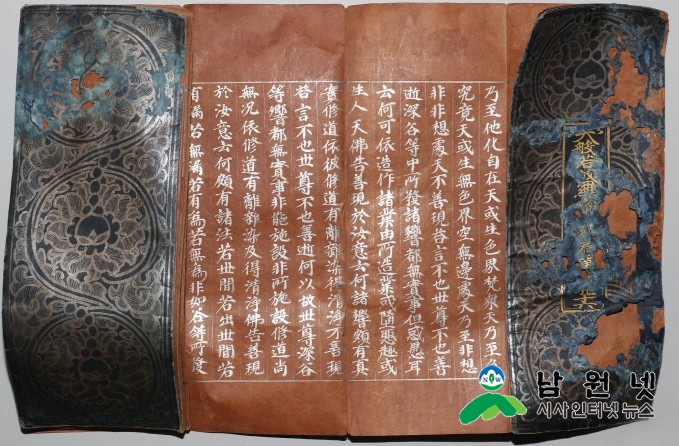 大般若波羅
乃至他化自在天或生色界梵衆天乃至色
究竟天或生無色界空無邊處天乃至非想
非非想處天不善現答言不也世尊不也善
逝深谷等中所發諸響都無實事但惑愚耳
云何可依造作諸業由所造業或墮惡趣或
生人天佛告善現於汝意云何諸響頗有真
實修道依彼修道有離雜染得清淨不善現
答言不也世尊不也善逝何以故世尊深谷
等響都無實事非能施設非所施設修道尚
無況依修道有離雜染及得清淨佛告善現
於汝意云何頗有諸法若世間若出世間若
有漏若無漏若有為若無為非如谷響所
NOW
남원넷
시사인터넷뉴스